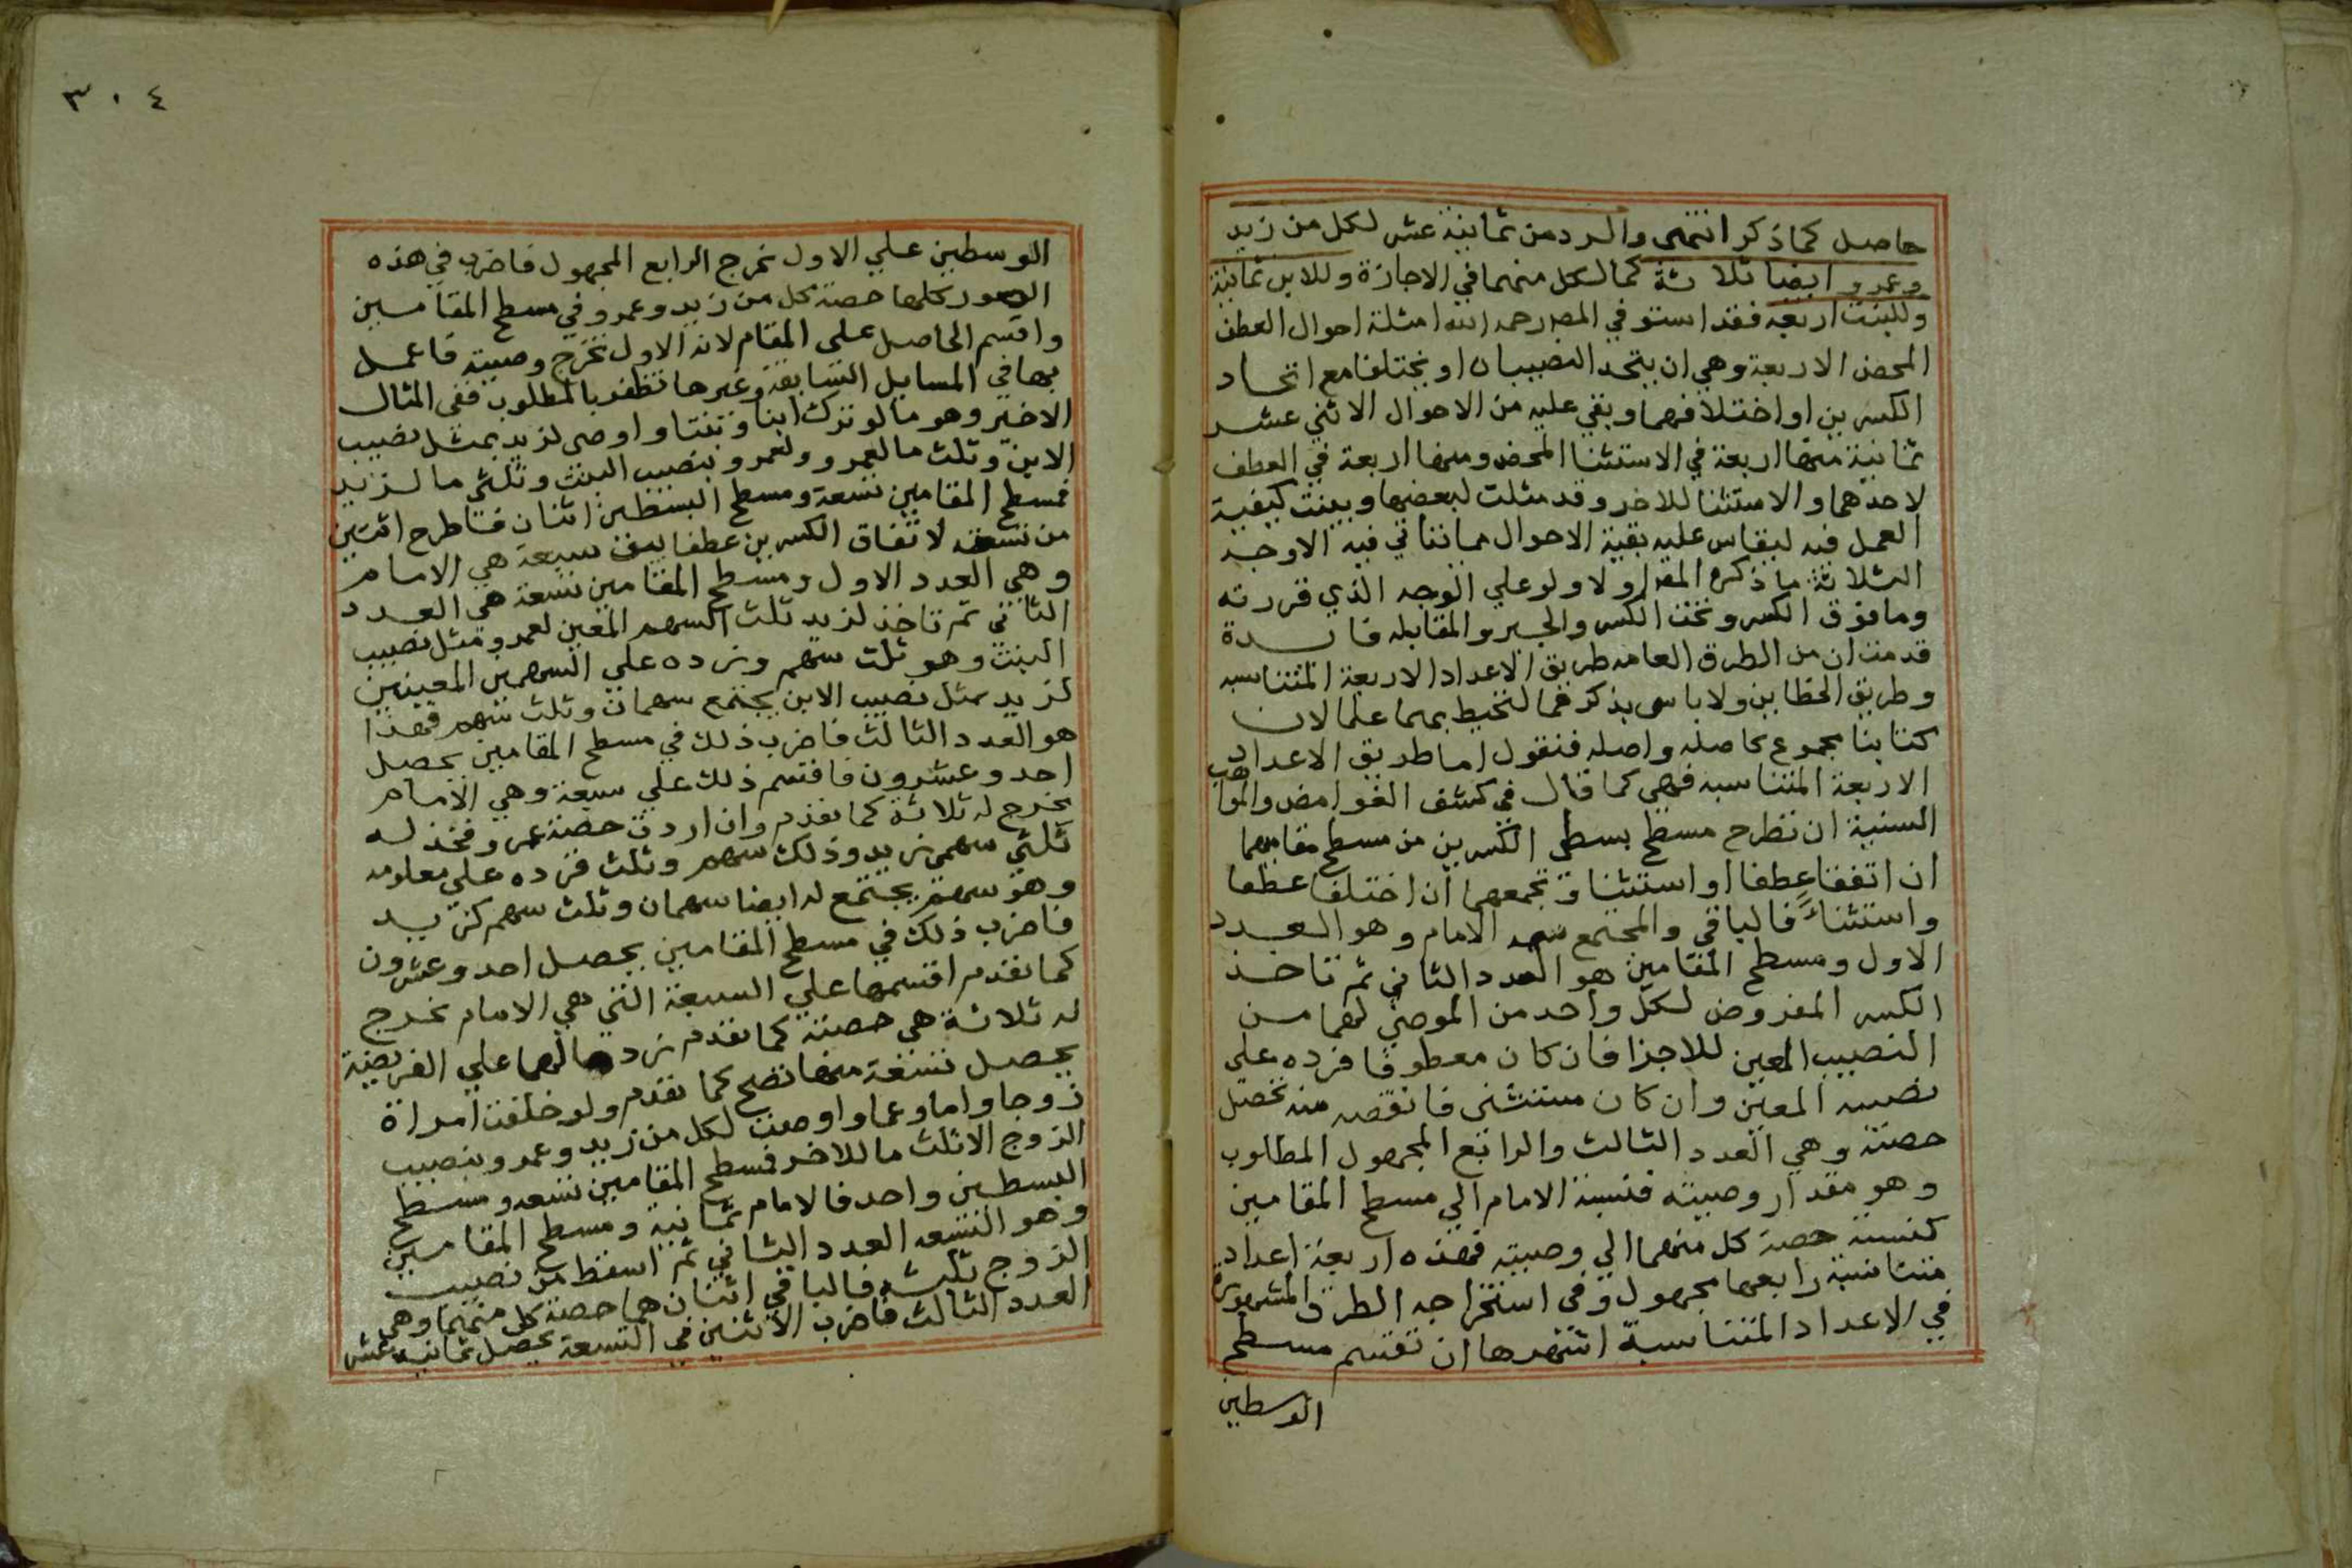 حاصل كما ذكر انتهى والرد من ثمانية عشر لكل من زيد
وعمرو ايضا ثلاثة كما لكل منهما في الاجازة وللابن ثمانية
وللبنت اربعة فقد استوفي المص رحمه الله امثلة احوال العطف
المحض الاربعة وهي ان يتحد النصيبان او يختلفا مع اتحاد
الكسرين او اختلافهما وبقي عليه من الاحوال الاثني عشر
ثمانية منها اربعة في الاستثنا المحض ومنها اربعة في العطف
لاحدهما والاستثنا للاخر وقد مثلت لبعضها وبينت كيفية
العمل فيه ليقاس عليه بقية الاحوال مما تتاتي فيه الاوجه
الثلاثة ما ذكره المص اولا ولو علي الوجه الذي قررته
وما فوق الكسر وتحت الكسر والجبر والمقابله فايدة
قدمت ان من الطرق العامه طريق الاعداد الاربعة المتناسبه
وطريق الخطاين ولا باس بذكرهما لتحيط بهما علما لان
كتابنا مجموع محاصله واصله فنقول اما طريق الاعداد
الاربعة المتناسبه فهي كما قال في كشف الغوامض والمواهب
السنية ان تطرح مسطح بسطي الكسرين من مسطح مقاميهما
ان اتفقا عطفا او استثنا وتجمعهما ان اختلفا عطفا
واستثناء فالباقي والمجتمع سمه الامام وهو العدد
الاول ومسطح المقامين هو العدد الثاني ثم تاخذ
الكسر المفروض لكل واحد من الموصي لهما من
النصيب المعين للاجزا فان كان معطوفا فزده على
نصيبه المعين وان كان مستثنى فانقصه منه تحصل
حصته وهي العدد الثالث والرابع المجهول المطلوب
وهو مقدار وصيته فنسبة الامام الي مسطح المقامين
كنسبة حصة كل منهما الي وصيته فهذه اربعة اعداد
متناسبة رابعها مجهول وفي استخراجه الطرق المشهورة
في الاعداد المتناسبة اشهرها ان تقسم مسطح
الوسطين
٣٠٤
الوسطين علي الاول نخرج الرابع المجهول فاضرب في هذه
الصور كلها حصة كل من زيد وعمرو في مسطح المقامين
واقسم الحاصل على المقام لانه الاول تخرج وصيته فاعمل
بها في المسايل السابقة وغيرها تظفر بالمطلوب ففي المثال
الاخير وهو ما لو ترك ابنا وبنتا واوصى لزيد بمثل نصيب
الابن وثلث ما لعمرو ولعمرو بنصيب البنت وثلثي ما لزيد
فمسطح المقامين تسعة ومسطح البسطين اثنان فتاطرح اثنين
من تسعة لاتفاق الكسرين عطفا يبقى سبعة هي الامام
وهي العدد الاول ومسطح المقامين تسعة هي العدد
الثاني ثم تاخذ لزيد ثلث السهم المعين لعمرو مثل نصيب
البنت وهو ثلث سهم وتزده علي السهمين المعينين
لزيد بمثل نصيب الابن يجتمع سهمان وثلث سهم فهذا
هو العدد الثالث فاضرب ذلك في مسطح المقامين يحصل
احد وعشرون فاقسم ذلك علي سبعة وهي الامام
يخرج له ثلاثة كما تقدم وان اردت حصة عمرو فخذ له
ثلثي سهمي زيد وذلك سهم وثلث فزده علي معلومه
وهو سهم يجتمع له ايضا سهمان وثلث سهم كزيد
فاضرب ذلك في مسطح المقامين يحصل احد وعشرون
كما تقدم اقسمها علي السبعة التي هي الامام نخرج
له ثلاثة هي حصته كما تقدم زد مالهما علي الفريضة
يحصل تسعة منها تصح كما تقدم ولو خلفت امراة
زوجا واما وعما واوصت لكل من زيد وعمرو بنصيب
الزوج الا ثلث ما للاخر فسطح المقامين تسعه ومسطح
البسطين واحد فالامام ثمانية ومسطح المقامين
وهو التسعه العدد الثاني ثم اسقط من نصيب
الزوج ثلثه فالباقي اثنان هما حصة كل منهما وهي
العدد الثالث فاضرب الاثنين في التسعة يحصل ثمانيه عشر